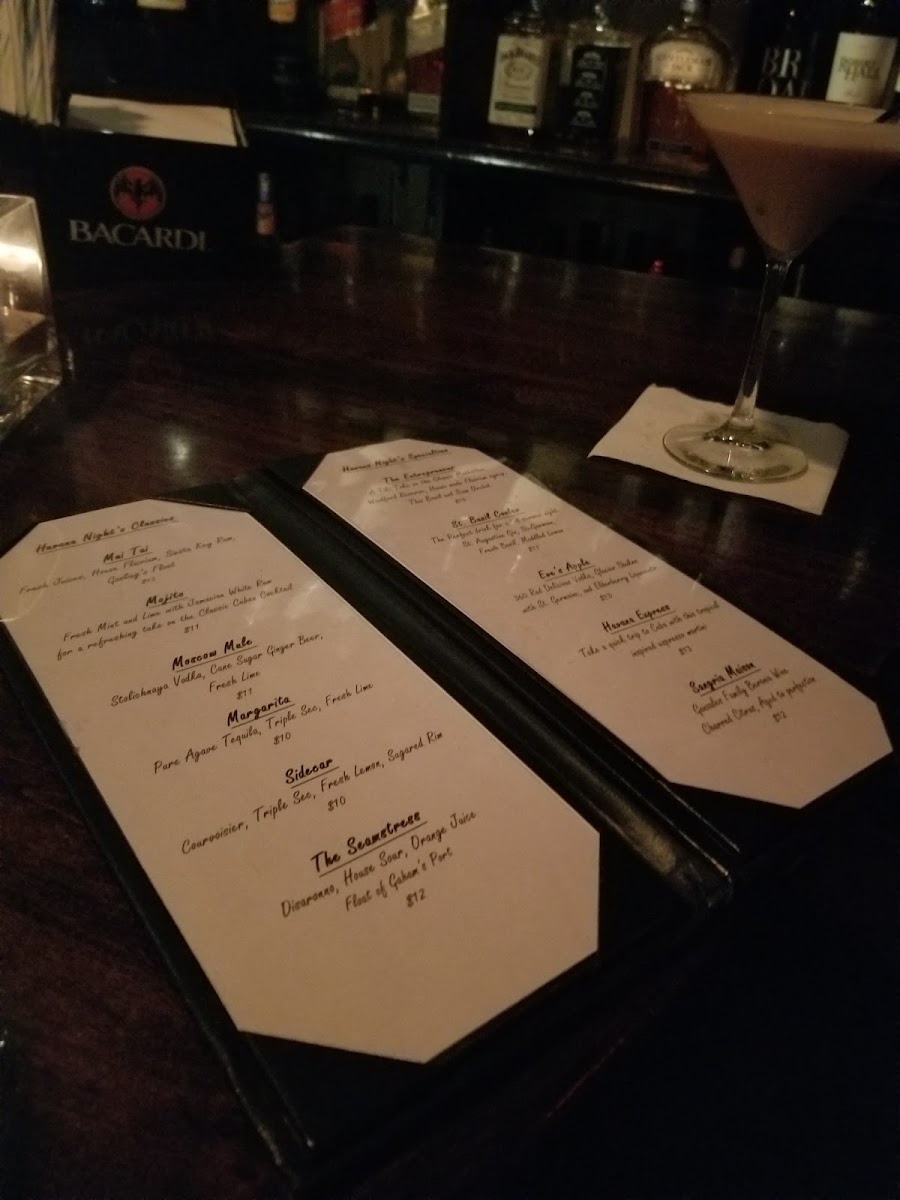 BACARDI
Havana Night's Classics
Mai Tai
Fresh Juices, House Flavrium, Siesta Key Rum,
Gosling's Float
Mojito
Fresh Mint and Lime with Jamaica White Rum
for a refreshing take on the Classic Cuban Cocktail
$11
Moscow Mule
Stolichnaya Vodka, Cane Sugar Ginger Beer,
Fresh Lime
$11
Margarita
Pure Agave Tequila, Triple Sec, Fresh Lime
$10
Sidecar
Courvoisier, Triple Sec, Fresh Lemon, Sugared Rim
$10
The Seamstress
Disaronno, House Sour, Orange Juice
Float of Gaham's Port
$12
Havana Night's Specialties
The Entrepreneur
Woodford Reserve, House made
Thai Basil and
St. Basil Cooler
The Perfect drink for a summer night
St. Augustine Gin, St.Germain,
Fresh Basil, Muddled Lemon
$11
Eve's Apple
360 Red Delicious Vodka, Glacier Shaken
with St. Germain, and Elderberry
Havana Express
Take a quick trip to Cuba with this tropical
inspired espresso martini
$13
Sangria Maison
Gonzalez Family Barrios Wine
Charred Citrus, Aged to perfection
$12